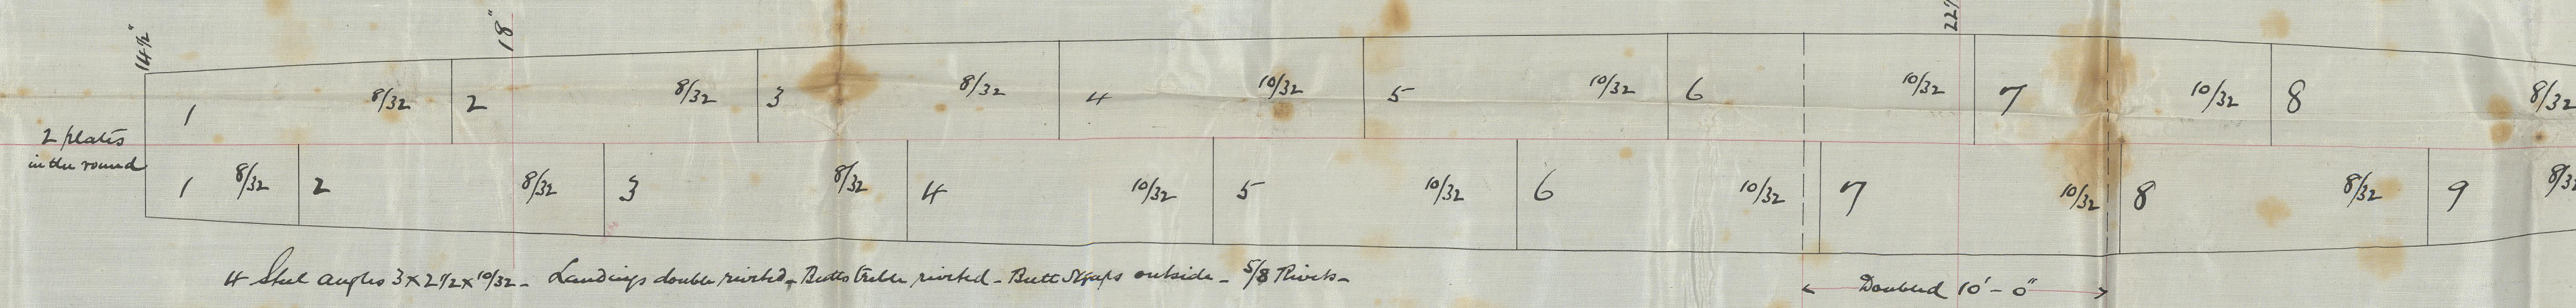 14½" 18" 22½
1 8/32 2 8/32 3 8/32 4 10/32 5 10/32 6 10/32 7 10/32 8 8/32
2 plates
in the round
1 8/32 2 8/32 3 8/32 4 10/32 5 10/32 6 10/32 7 10/32 8 8/32 9 8/32
4 Steel angles 3 x 2 1/2 x 10/32 - Landings double riveted - Butts treble riveted - Butt Straps outside - 5/8 Rivets -
Doubled 10' - 0"